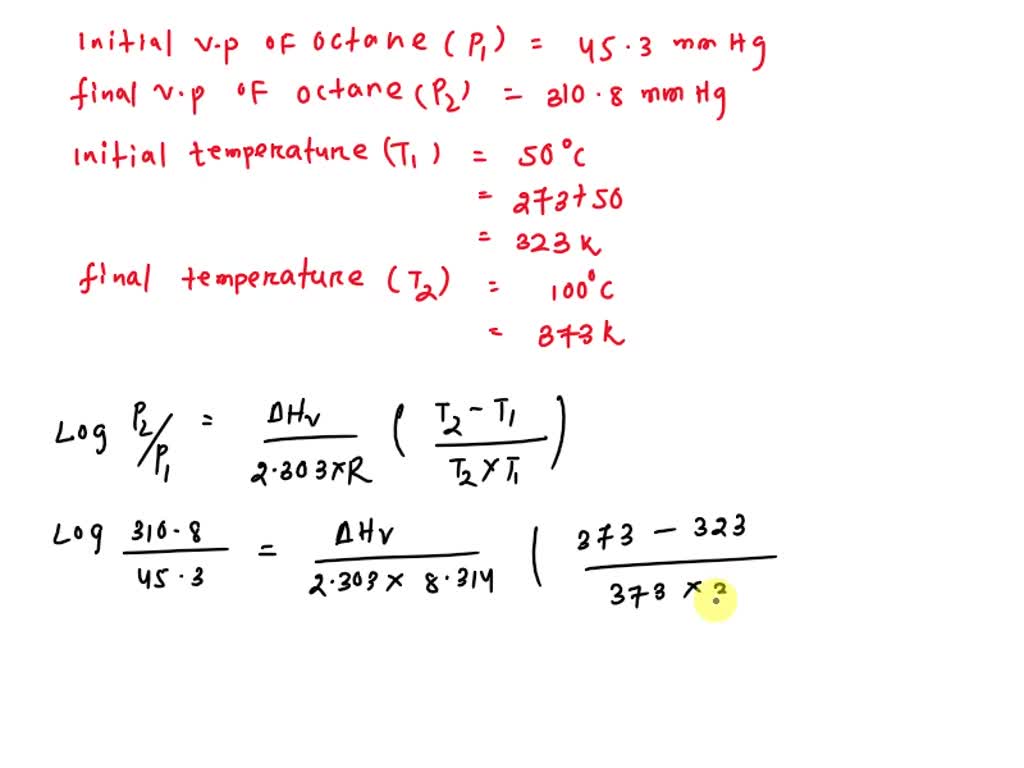 Initial v.p of octane (P₁) = 45.3 mm Hg
final v.p of octane (P₂) = 310.8 mm Hg
Initial temperature (T₁) = 50°C
= 273+50
= 323 K
final temperature (T₂) = 100°C
= 373 K
Log P₂/P₁ = ΔHv / 2.303×R ( T₂ - T₁ / T₂ × T₁ )
Log 310.8 / 45.3 = ΔHv / 2.303 × 8.314 ( 373 - 323 / 373 ×